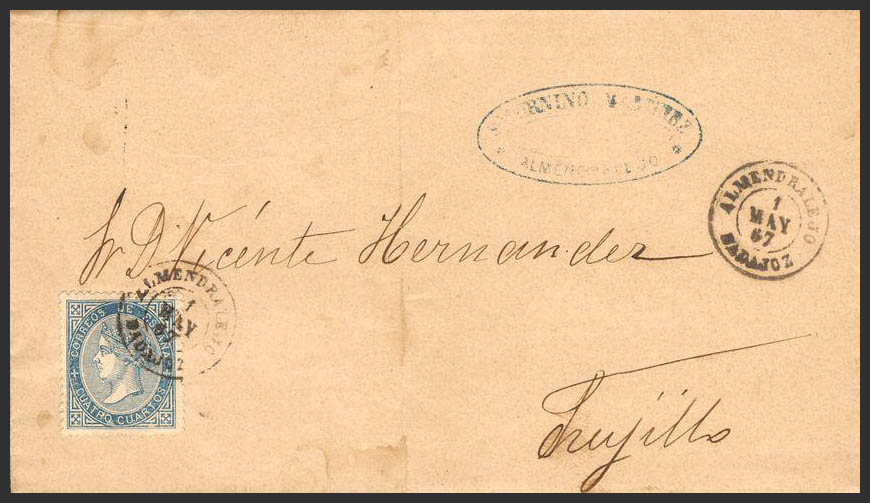 ALMENDRALEJO
ALMENDRALEJO
1
MAY
67
BADAJOZ
Sr. D. Vicénte Hernandez
ALMENDRALEJO
1
MAY
67
BADAJOZ
CORREOS DE ESPAÑA
CUATRO CUARTOS
Trujillo